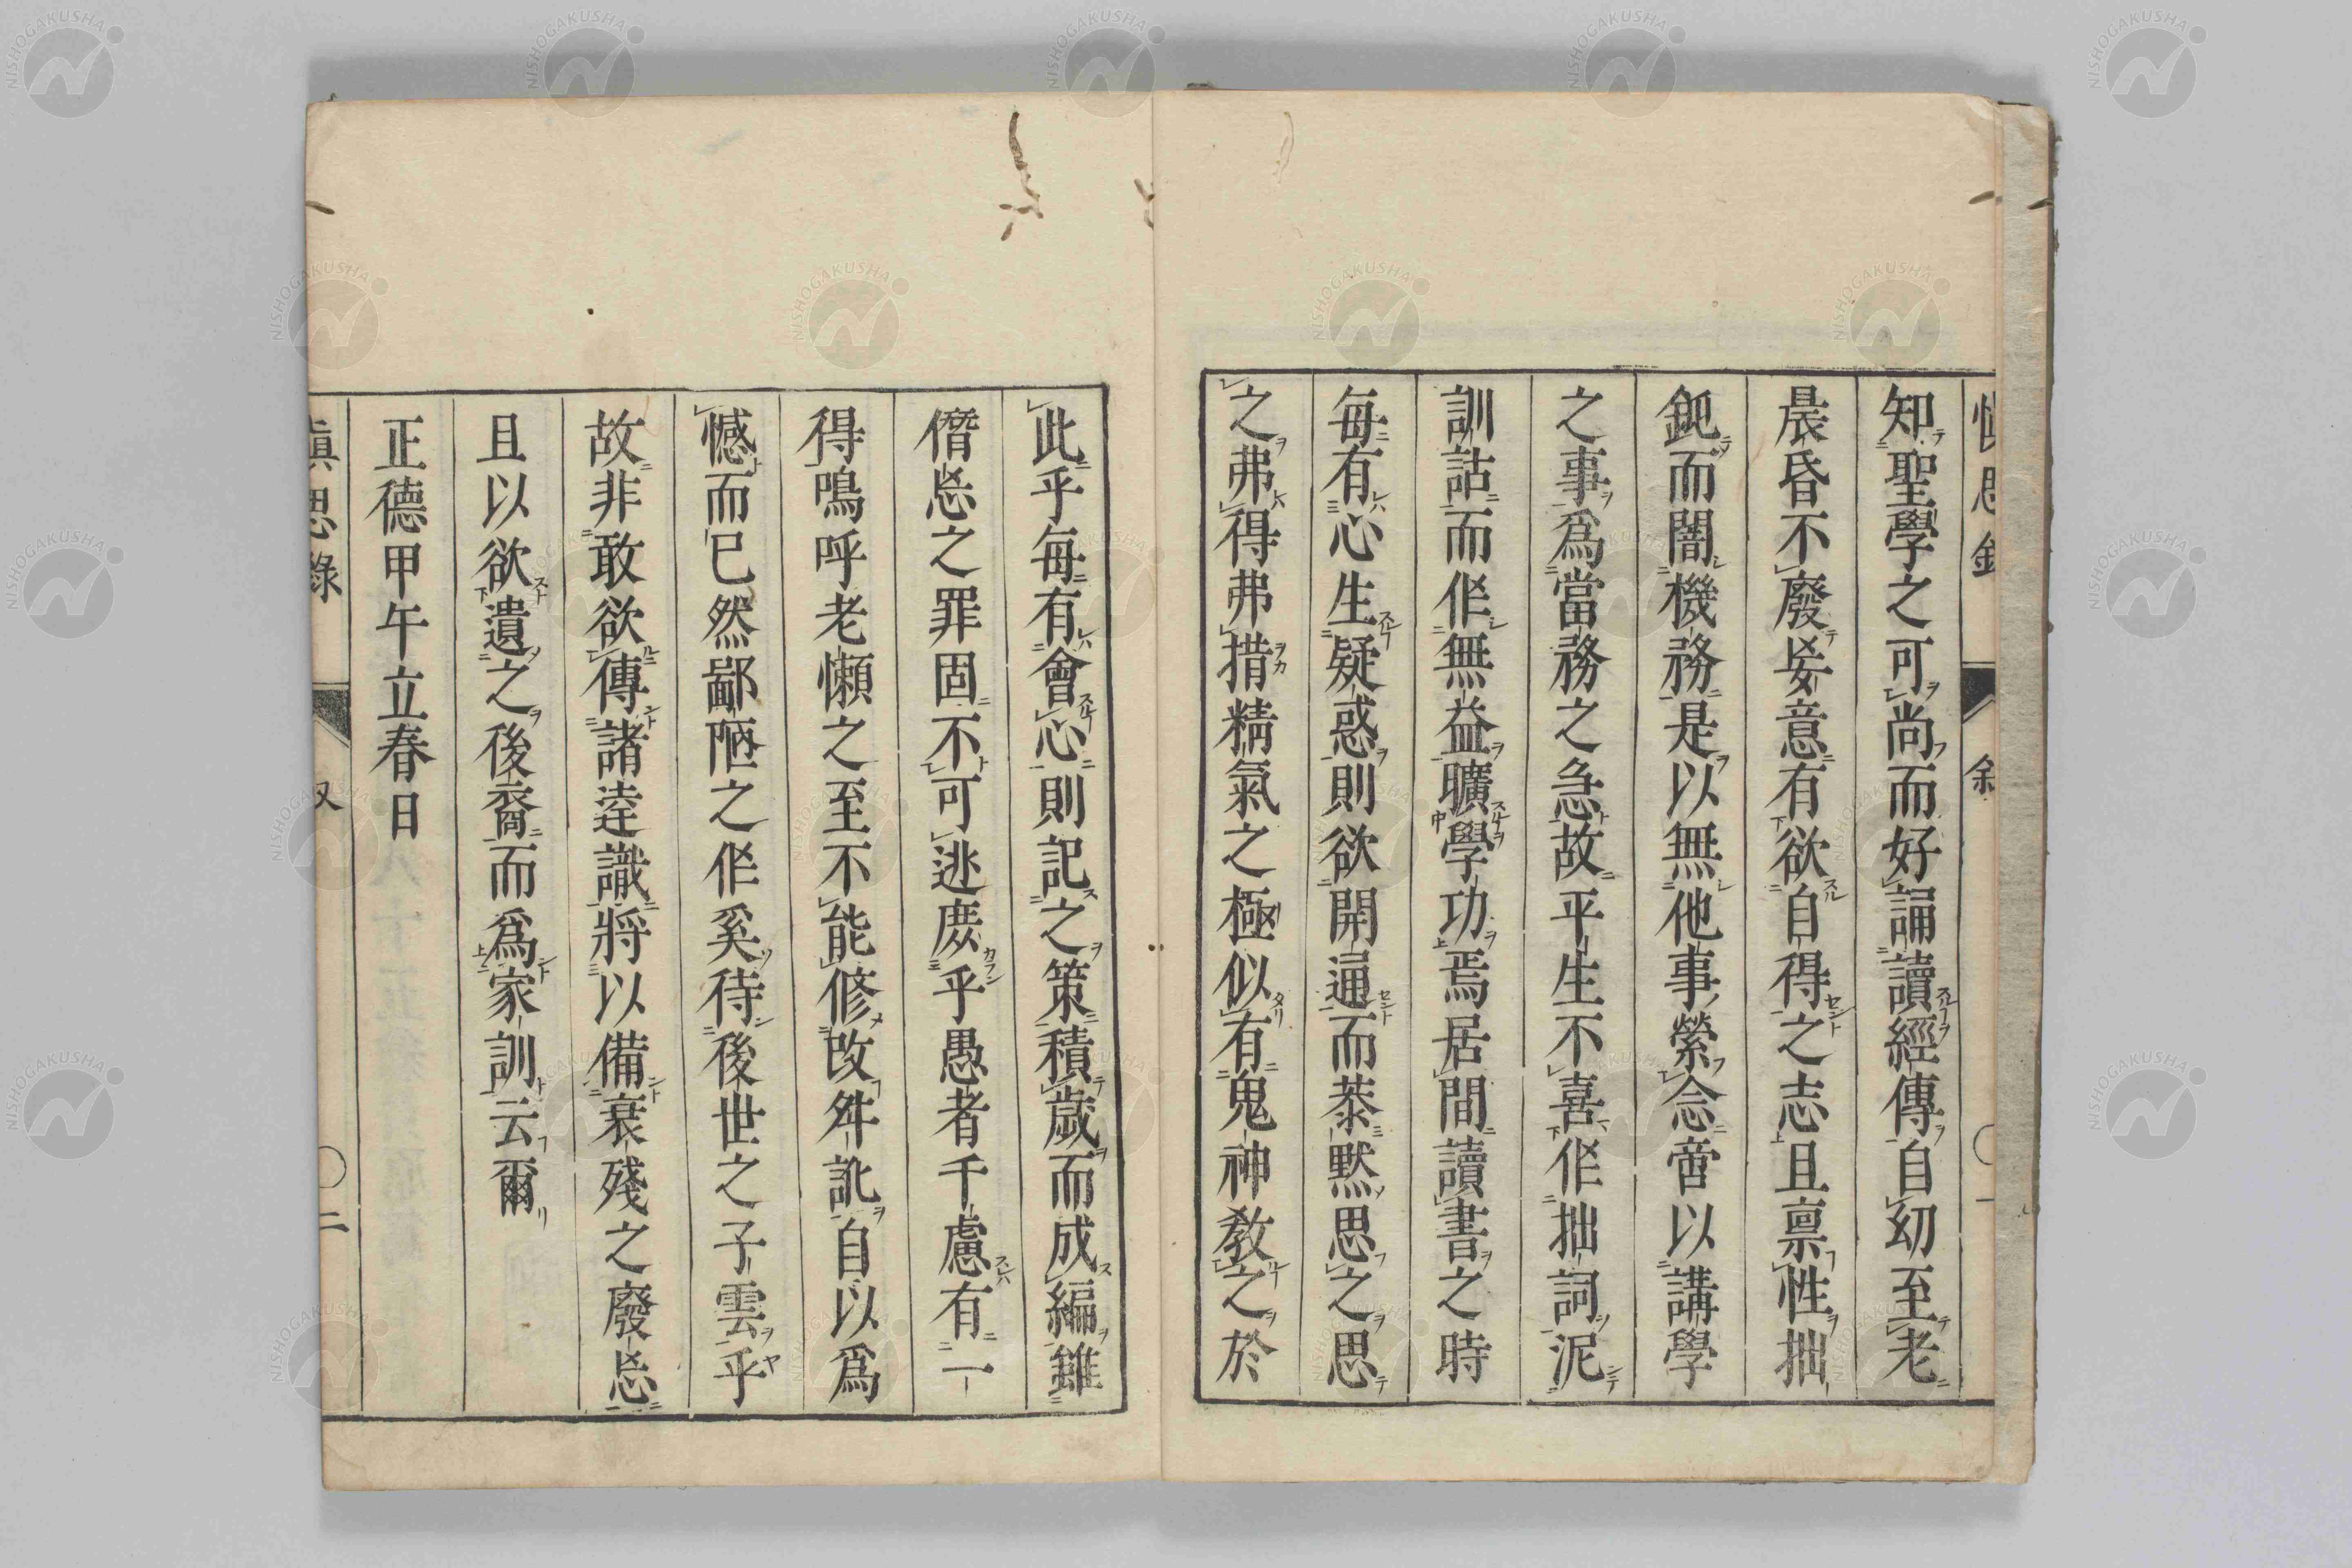 知聖學之可尚而好誦讀經傳自幼至老
晨昏不廢妄意有欲自得之志且禀性拙
鈍而闇機務是以無他事縈念啻以講學
之事爲當務之急故平生不喜作拙詞泥
訓詁而作無益曠學功焉居間讀書之時
每有心生疑惑則欲開通而恭默思之思
之弗得弗措精氣之極似有鬼神教之於
此乎每有會心則記之策積歲而成編雖
僭妄之罪固不可逃庶乎愚者千慮有一
得嗚呼老懶之至不能修改舛訛自以爲
憾而已然鄙陋之作奚待後世之子雲乎
故非敢欲傳諸逵識將以備衰殘之廢忘
且以欲遺之後裔而爲家訓云爾
正德甲午立春日
慎思錄 叙 二
NISHOGAKUSHA